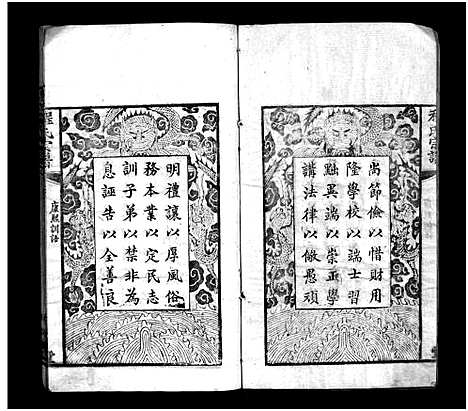 程氏宗譜
尚節儉以惜財用
隆學校以端士習
黜異端以崇正學
講法律以儆愚頑
明禮讓以厚風俗
務本業以定民志
訓子弟以禁非為
息誣告以全善良
程氏宗譜
聖熙訓語